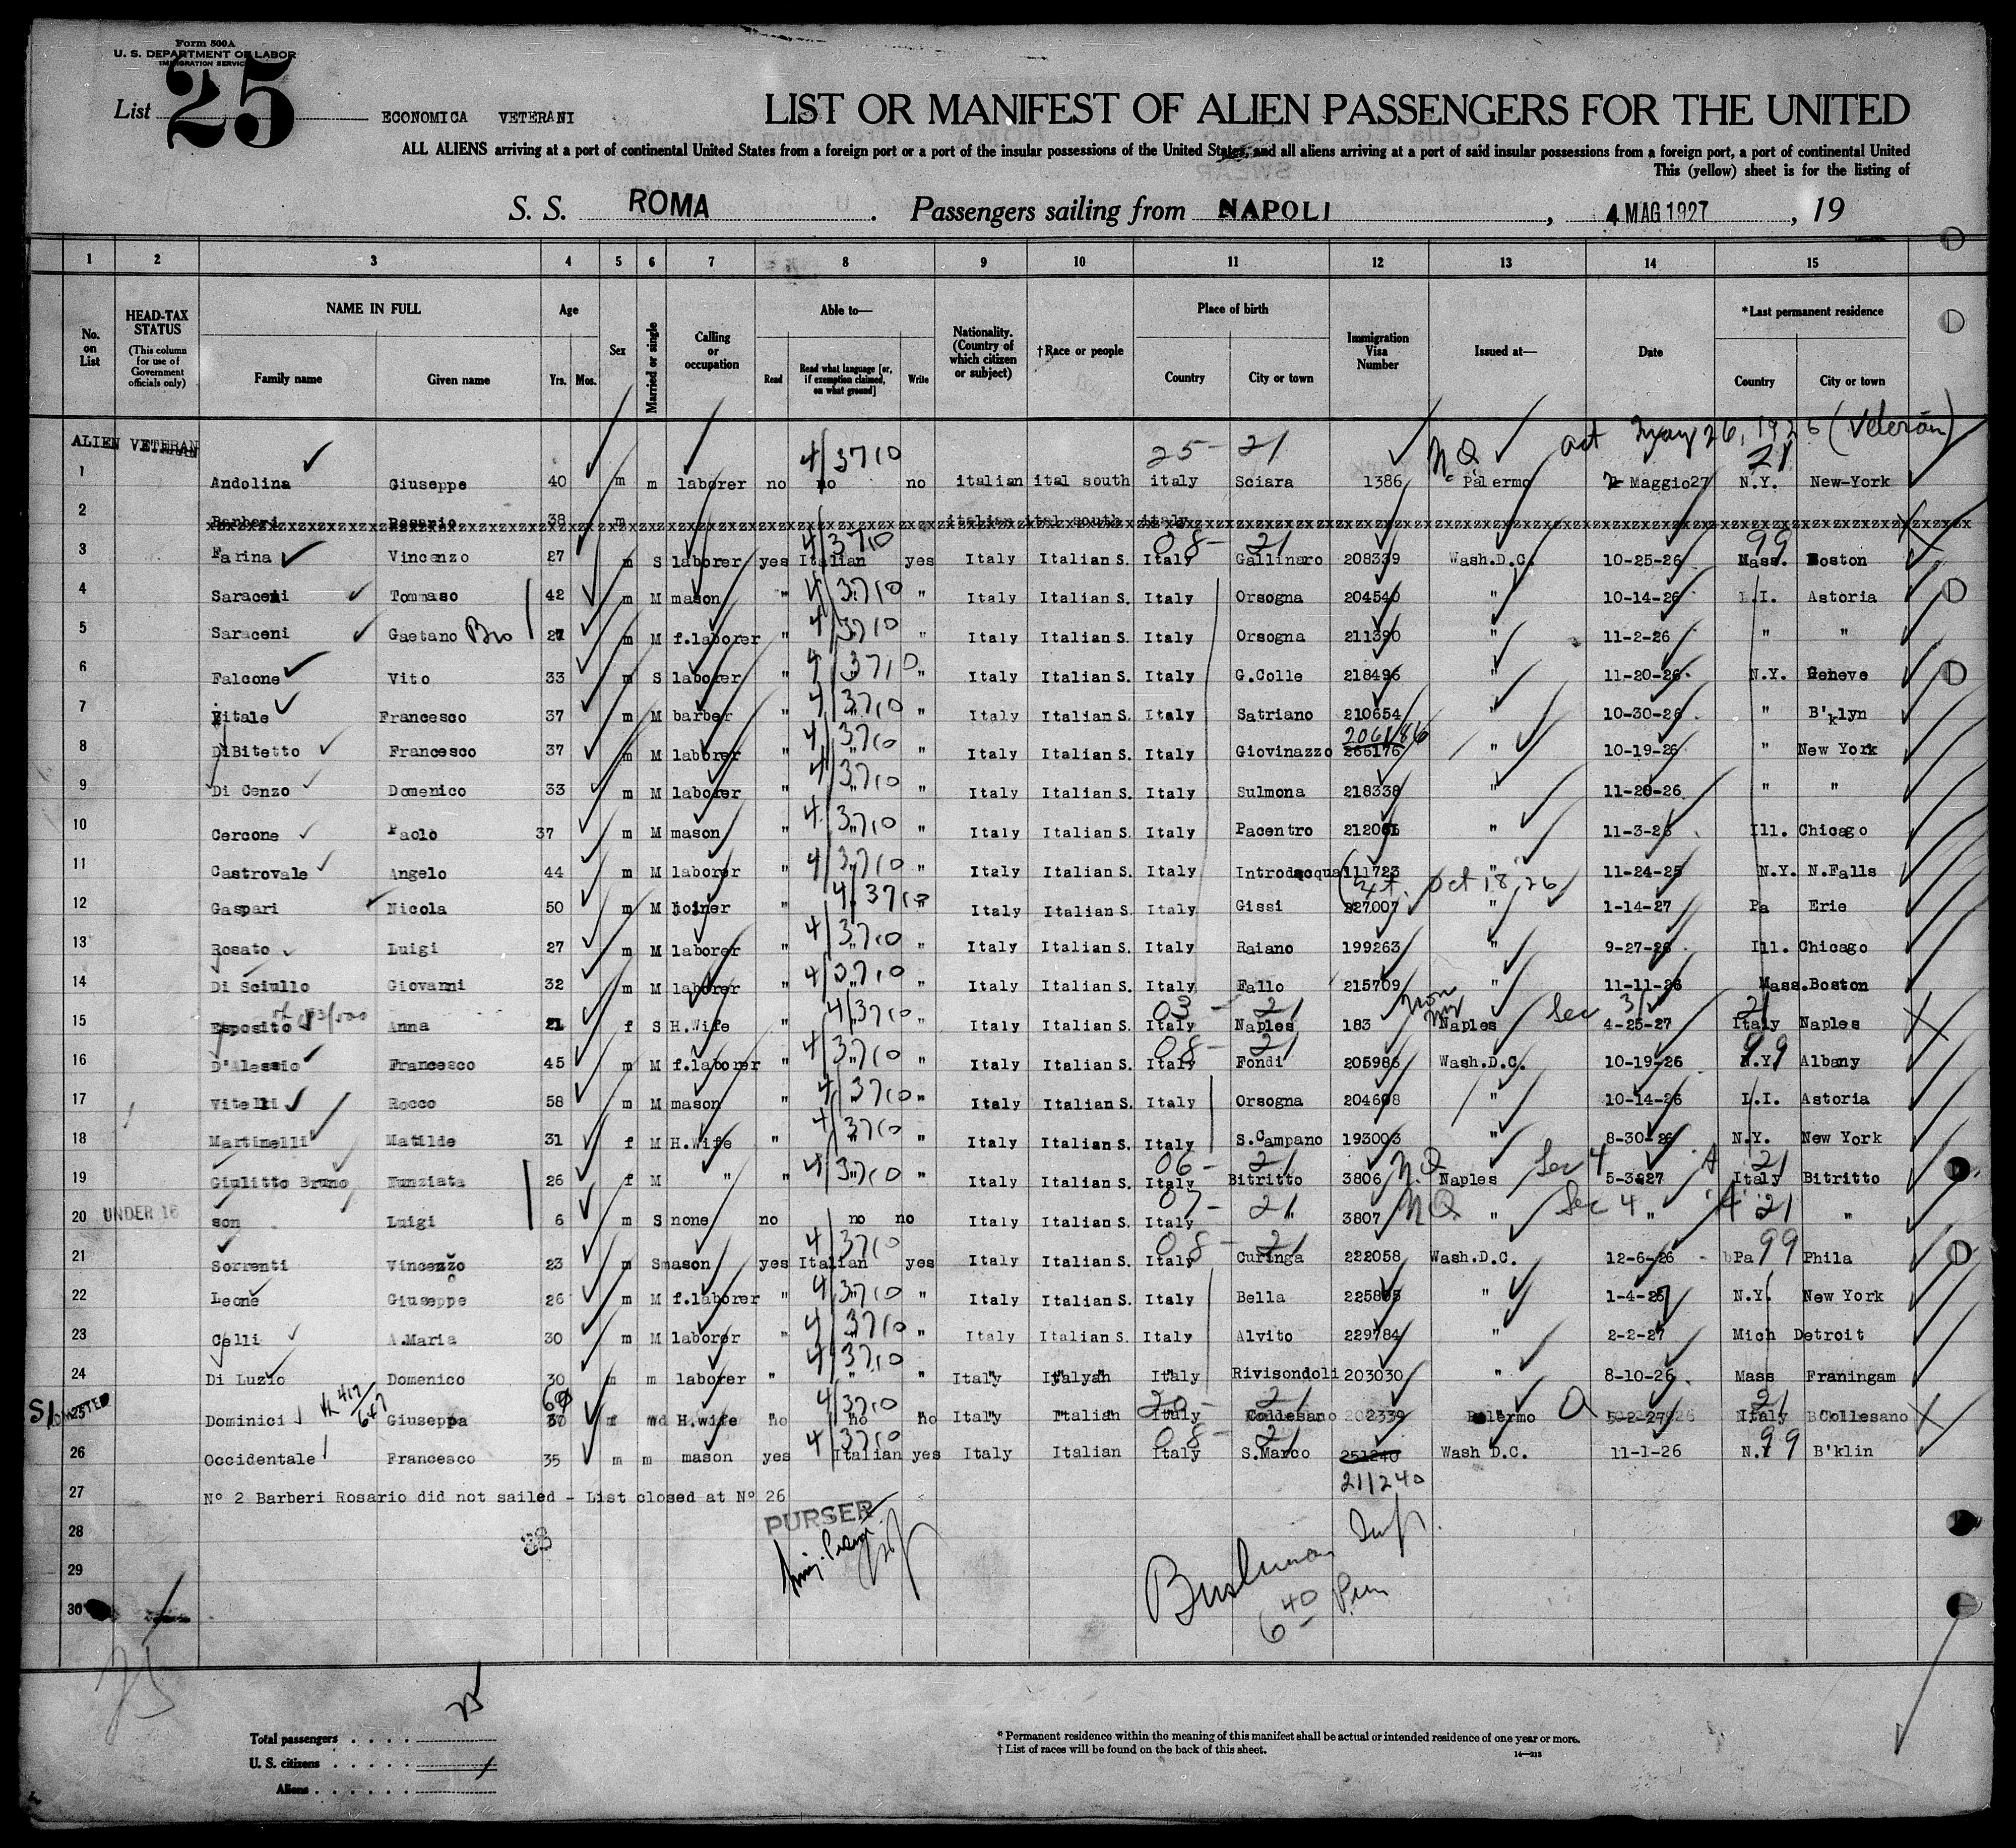 Form 500A
U. S. DEPARTMENT OF LABOR
IMMIGRATION SERVICE
List 25 ECONOMICA VETERANI
LIST OR MANIFEST OF ALIEN PASSENGERS FOR THE UNITED
ALL ALIENS arriving at a port of continental United States from a foreign port or a port of the insular possessions of the United States, and all aliens arriving at a port of said insular possessions from a foreign port, a port of continental United
This (yellow) sheet is for the listing of
S. S. ROMA . Passengers sailing from NAPOLI , 4 MAG 1927 , 19
1 2 3 4 5 6 7 8 9 10 11 12 13 14 15
No. on List
HEAD-TAX STATUS (This column for use of Government officials only)
NAME IN FULL Family name Given name
Age Yrs. Mos.
Sex
Married or single
Calling or occupation
Able to— Read Read what language [or, if exemption claimed, on what ground] Write
Nationality. (Country of which citizen or subject)
†Race or people
Place of birth Country City or town
Immigration Visa Number
Issued at—
Date
*Last permanent residence Country City or town
ALIEN VETERAN act May 26, 1926 (Veteran)
4/3710 25- 21 NQ 21
1 Andolina Giuseppe 40 m m laborer no no no italian ital south italy Sciara 1386 Palermo 2 Maggio27 N.Y. New-York
2 Barberi Rosario 38 m italian ital south italy
4/3710 08- 21 99
3 Farina Vincenzo 27 m S laborer yes Italian yes Italy Italian S. Italy Gallinaro 208339 Wash.D.C. 10-25-26 Mass. Boston
4 Saraceni Tommaso 42 m M mason " 4/3710 " Italy Italian S. Italy Orsogna 204540 " 10-14-26 L.I. Astoria
5 Saraceni Gaetano Bro 27 m M f.laborer " 4/3710 " Italy Italian S. Italy Orsogna 211390 " 11-2-26 " "
6 Falcone Vito 33 m S laborer " 4/3710 " Italy Italian S. Italy G.Colle 218496 " 11-20-26 N.Y. Geneve
7 Vitale Francesco 37 m M barber " 4/3710 " Italy Italian S. Italy Satriano 210654 " 10-30-26 " B'klyn
206186
8 DiBitetto Francesco 37 m M laborer " 4/3710 " Italy Italian S. Italy Giovinazzo 266176 " 10-19-26 " New York
9 Di Cenzo Domenico 33 m M laborer " 4/3710 " Italy Italian S. Italy Sulmona 218338 " 11-20-26 " "
10 Cercone Paolo 37 m M mason " 4/3710 " Italy Italian S. Italy Pacentro " 11-3-26 Ill. Chicago
11 Castrovale Angelo 44 m M laborer " 4/3710 " Italy Italian S. Italy Introdacqua 111723 " 11-24-25 N.Y. N.Falls
Oct 18, 26
12 Gaspari Nicola 50 m M " 4/3710 " Italy Italian S. Italy Gissi 227007 " 1-14-27 Pa Erie
13 Rosato Luigi 27 m M laborer " 4/3710 " Italy Italian S. Italy Raiano 199263 " 9-27-26 Ill. Chicago
14 Di Sciullo Giovanni 32 m M laborer " 4/3710 " Italy Italian S. Italy Fallo 215709 " 11-11-26 Mass. Boston
03- 21 non Sec 3/2 21
15 Esposito Anna 21 f S H.Wife " 4/3710 " Italy Italian S. Italy Naples 183 Naples 4-25-27 Italy Naples
08- 21 99
16 D'Alessio Francesco 45 m M f.laborer " 4/3710 " Italy Italian S. Italy Fondi 205986 Wash.D.C. 10-19-26 N.Y. Albany
17 Vitelli Rocco 58 m M mason " 4/3710 " Italy Italian S. Italy Orsogna 204608 " 10-14-26 L.I. Astoria
18 Martinelli Matilde 31 f M H.Wife " 4/3710 " Italy Italian S. Italy S.Campano 193003 " 8-30-26 N.Y. New York
06- 21 NQ Sec 4 21
19 Giulitto Bruno Nunziata 26 f M " " 4/3710 " Italy Italian S. Italy Bitritto 3806 Naples 5-3-27 Italy Bitritto
07- 21 NQ Sec 4 21
20 UNDER 16 son Luigi 6 m S none no no no Italy Italian S. Italy " 3807 " " "
4/3710 08- 21 99
21 Sorrenti Vincenzo 23 m S mason yes Italian yes Italy Italian S. Italy Curinga 222058 Wash.D.C. 12-6-26 Pa Phila
22 Leone Giuseppe 26 m M f.laborer " 4/3710 " Italy Italian S. Italy Bella 225805 " 1-4-27 N.Y. New York
23 Celli A.Maria 30 m M laborer " 4/3710 " Italy Italian S. Italy Alvito 229784 " 2-2-27 Mich Detroit
24 Di Luzio Domenico 30 m m laborer " 4/3710 " Italy Italyan Italy Rivisondoli 203030 " 8-10-26 Mass Framingam
SI 417/647 60 4/3710 20- 21 21
25 Dominici Giuseppa f wd H.wife no no no Italy Italian Italy Collesano 2339 Palermo 5-2-27 Italy Collesano
4/3710 08- 21 99
26 Occidentale Francesco 35 m m mason yes Italian yes Italy Italian Italy S.Marco 251240 Wash D.C. 11-1-26 N.Y B'klin
211240
27 Nº 2 Barberi Rosario did not sailed - List closed at Nº 26
PURSER
28 Insp.
29 Bushman
30 6 40 Pm
25
Total passengers . . . .
U. S. citizens . . . . .
Aliens . . . . . .
* Permanent residence within the meaning of this manifest shall be actual or intended residence of one year or more.
† List of races will be found on the back of this sheet.
14—213